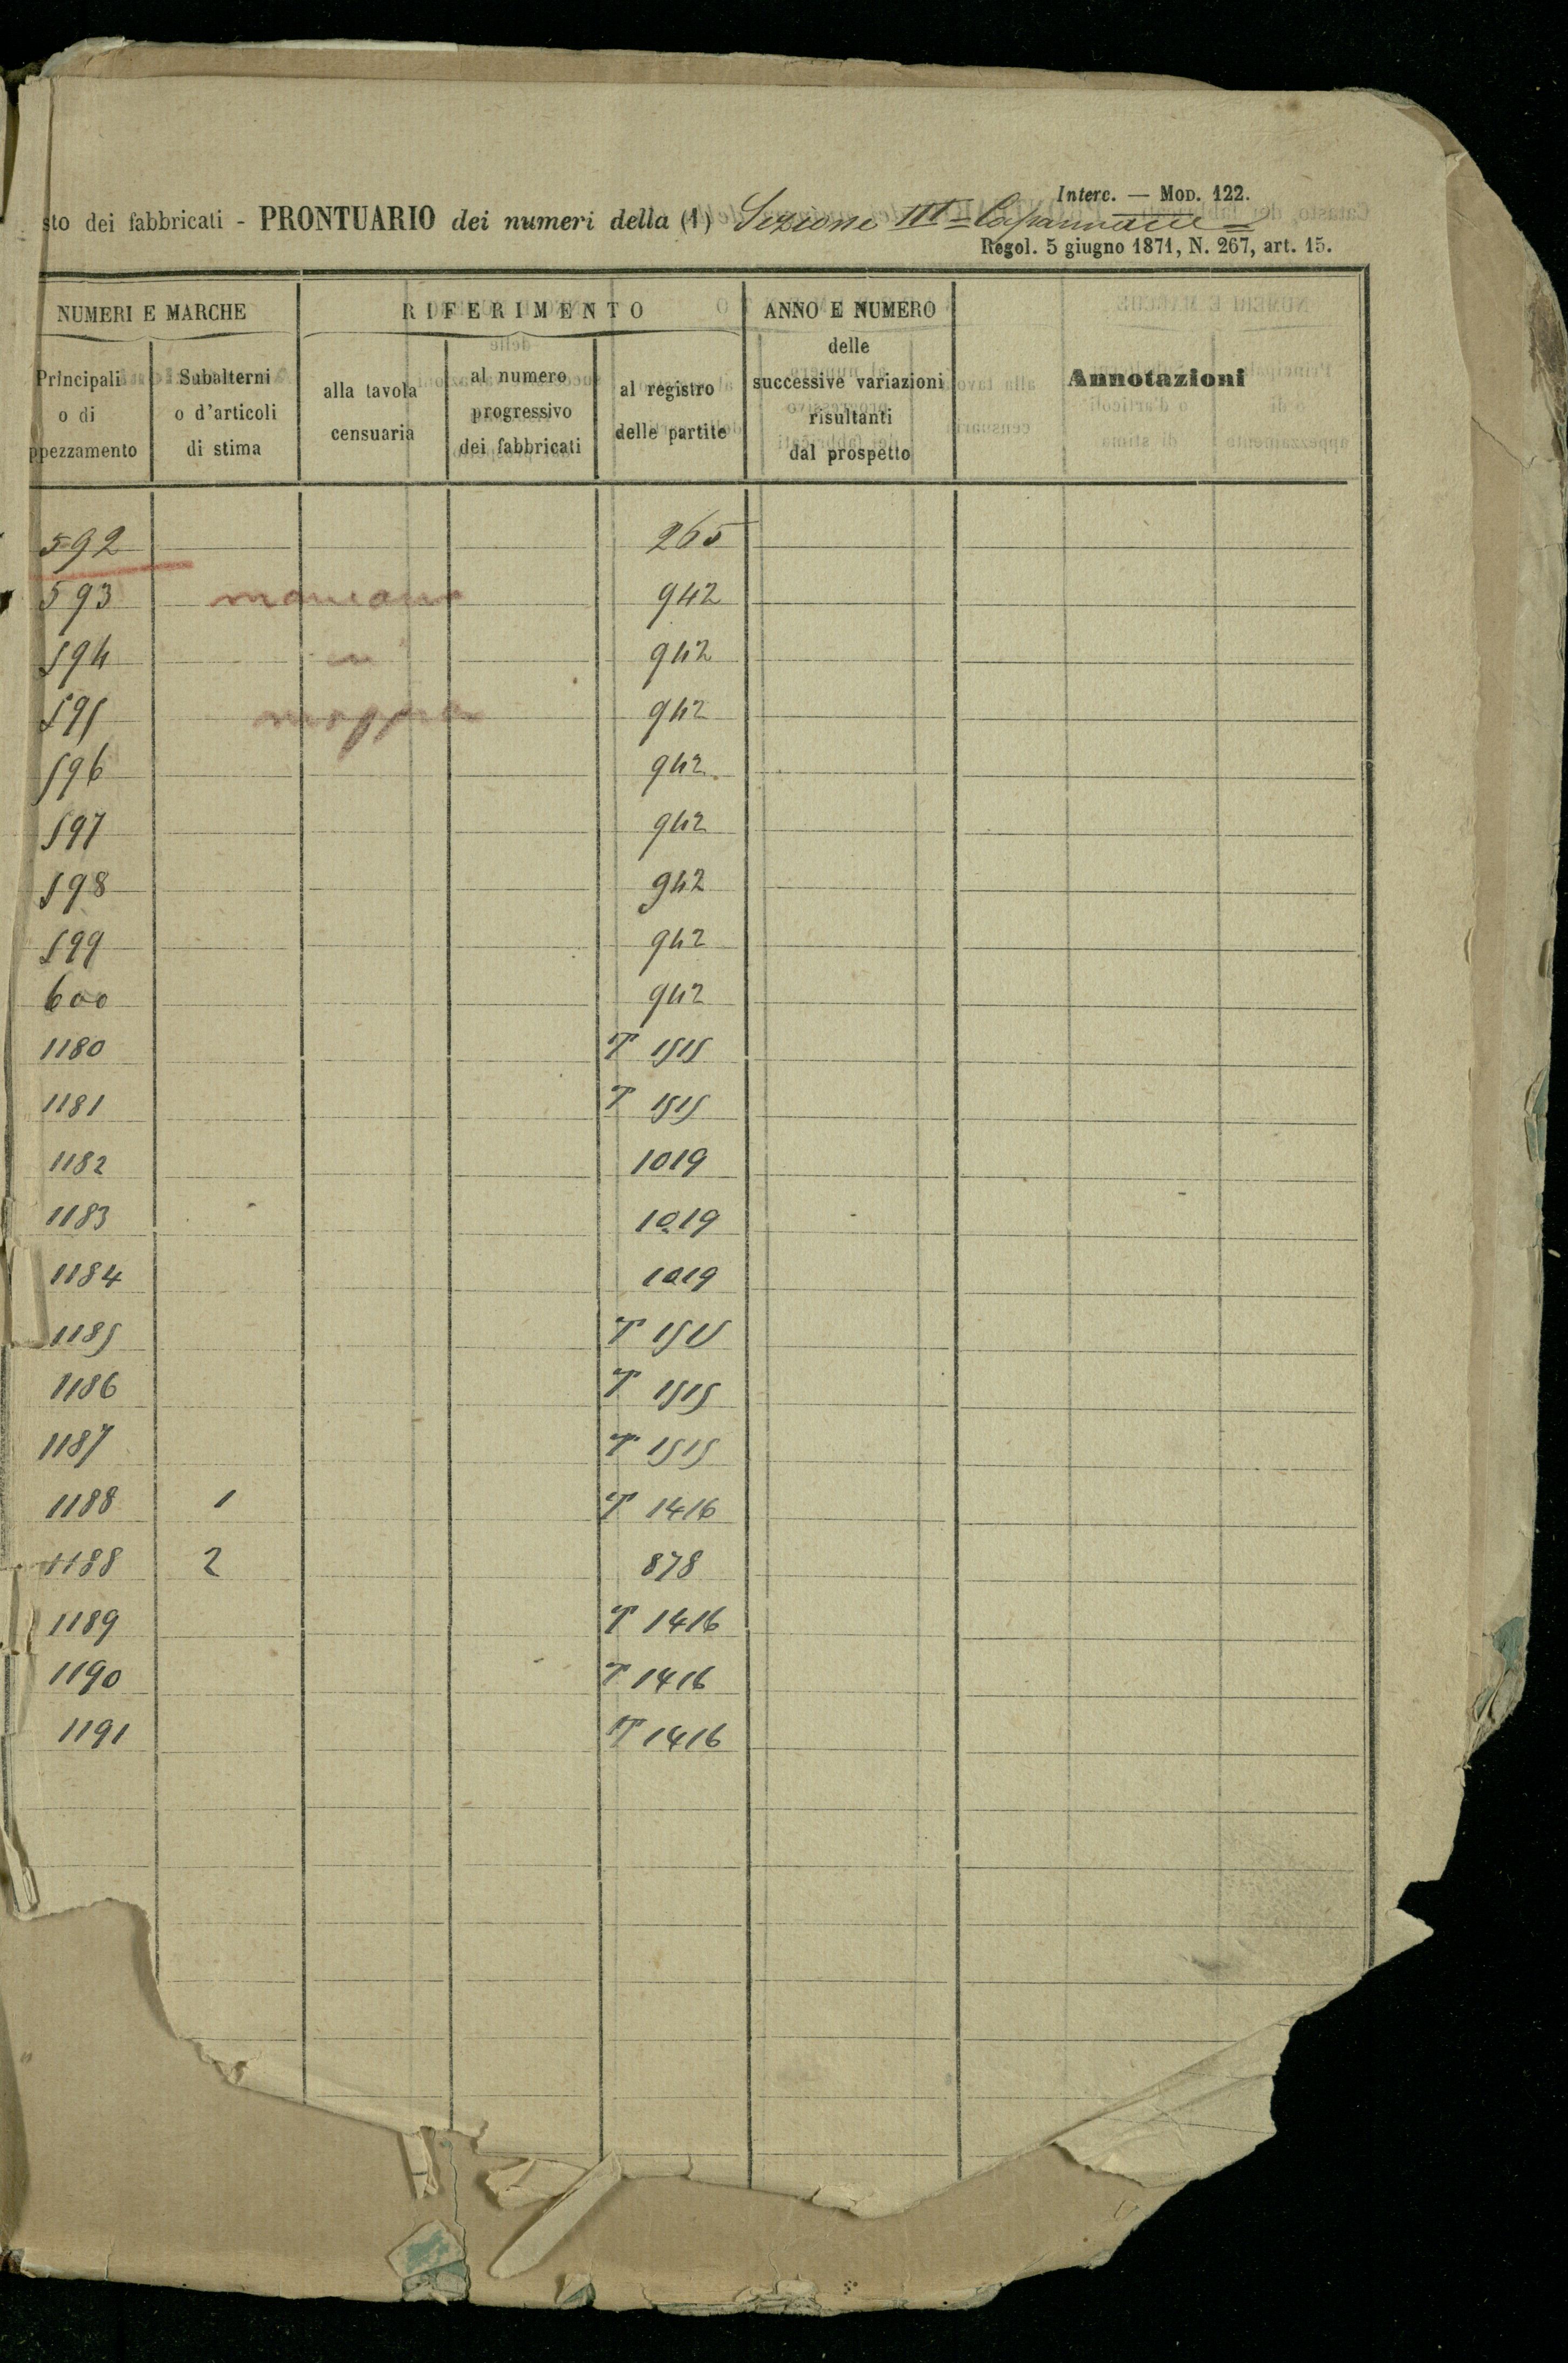 Interc. — Mod. 122.
sto dei fabbricati - PRONTUARIO dei numeri della (1) Sezione III =
Regol. 5 giugno 1871, N. 267, art. 15.
NUMERI E MARCHE RIFERIMENTO ANNO E NUMERO
Principali o di ppezzamento
Subalterni o d'articoli di stima
alla tavola censuaria
al numero progressivo dei fabbricati
al registro delle partite
delle successive variazioni risultanti dal prospetto
Annotazioni
592 265
593 mancano 942
594 in 942
595 mappa 942
596 942
597 942
598 942
599 942
600 942
1180 T 1515
1181 T 1515
1182 1019
1183 1019
1184 1019
1185 T 1515
1186 T 1515
1187 T 1515
1188 1 T 1416
1188 2 878
1189 T 1416
1190 T 1416
1191 T 1416